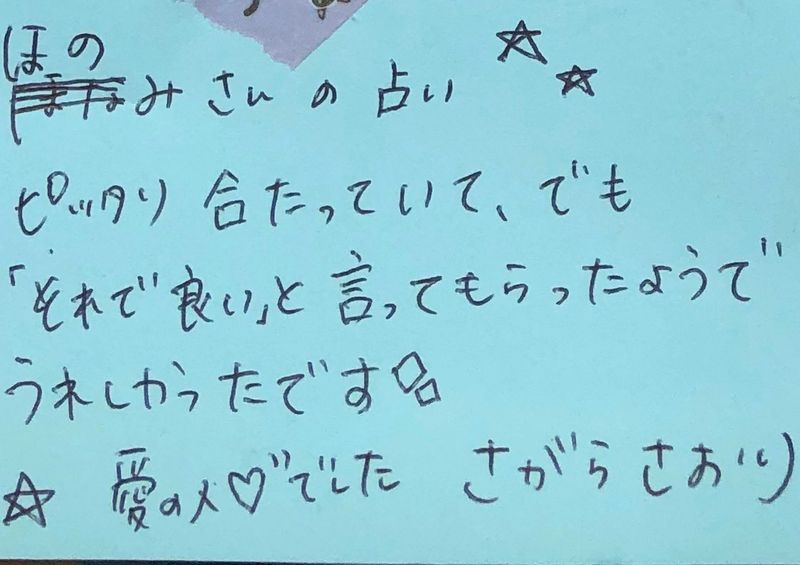 ほの
みさんの占い ☆☆
ピッタリ合たっていて、でも
「それで良い」と言ってもらったようで
うれしかったです
☆ 愛の人♡でした さがらさおり